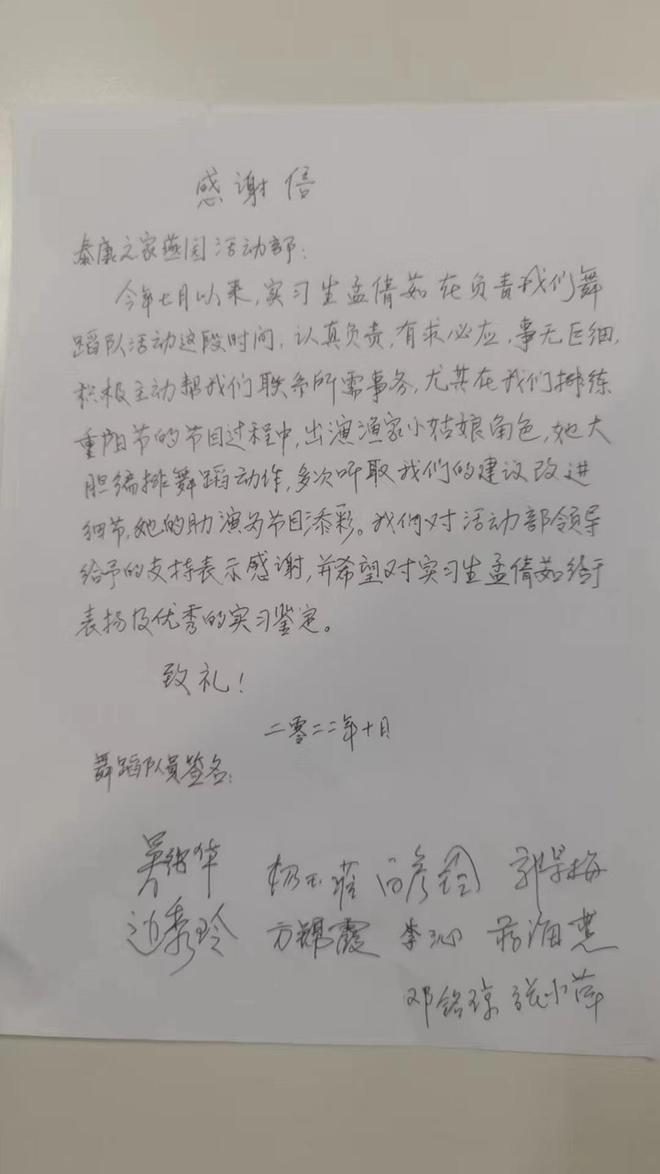 感谢信
泰康之家燕园活动部:
今年七月以来,实习生孟倩茹在负责我们舞
蹈队活动这段时间,认真负责,有求必应,事无巨细,
积极主动帮我们联系所需事务,尤其在我们排练
重阳节的节目过程中,出演渔家小姑娘角色,她大
胆编排舞蹈动作,多次听取我们的建议改进
细节,她的助演为节目添彩。我们对活动部领导
给予的支持表示感谢,并希望对实习生孟倩茹给于
表扬及优秀的实习鉴定。
致礼!
二零二二年十月
舞蹈队员签名:
杨玉 郭景梅
边秀玲 方锦霞 李沁 蒋海慧
邓铭琼 张小萍